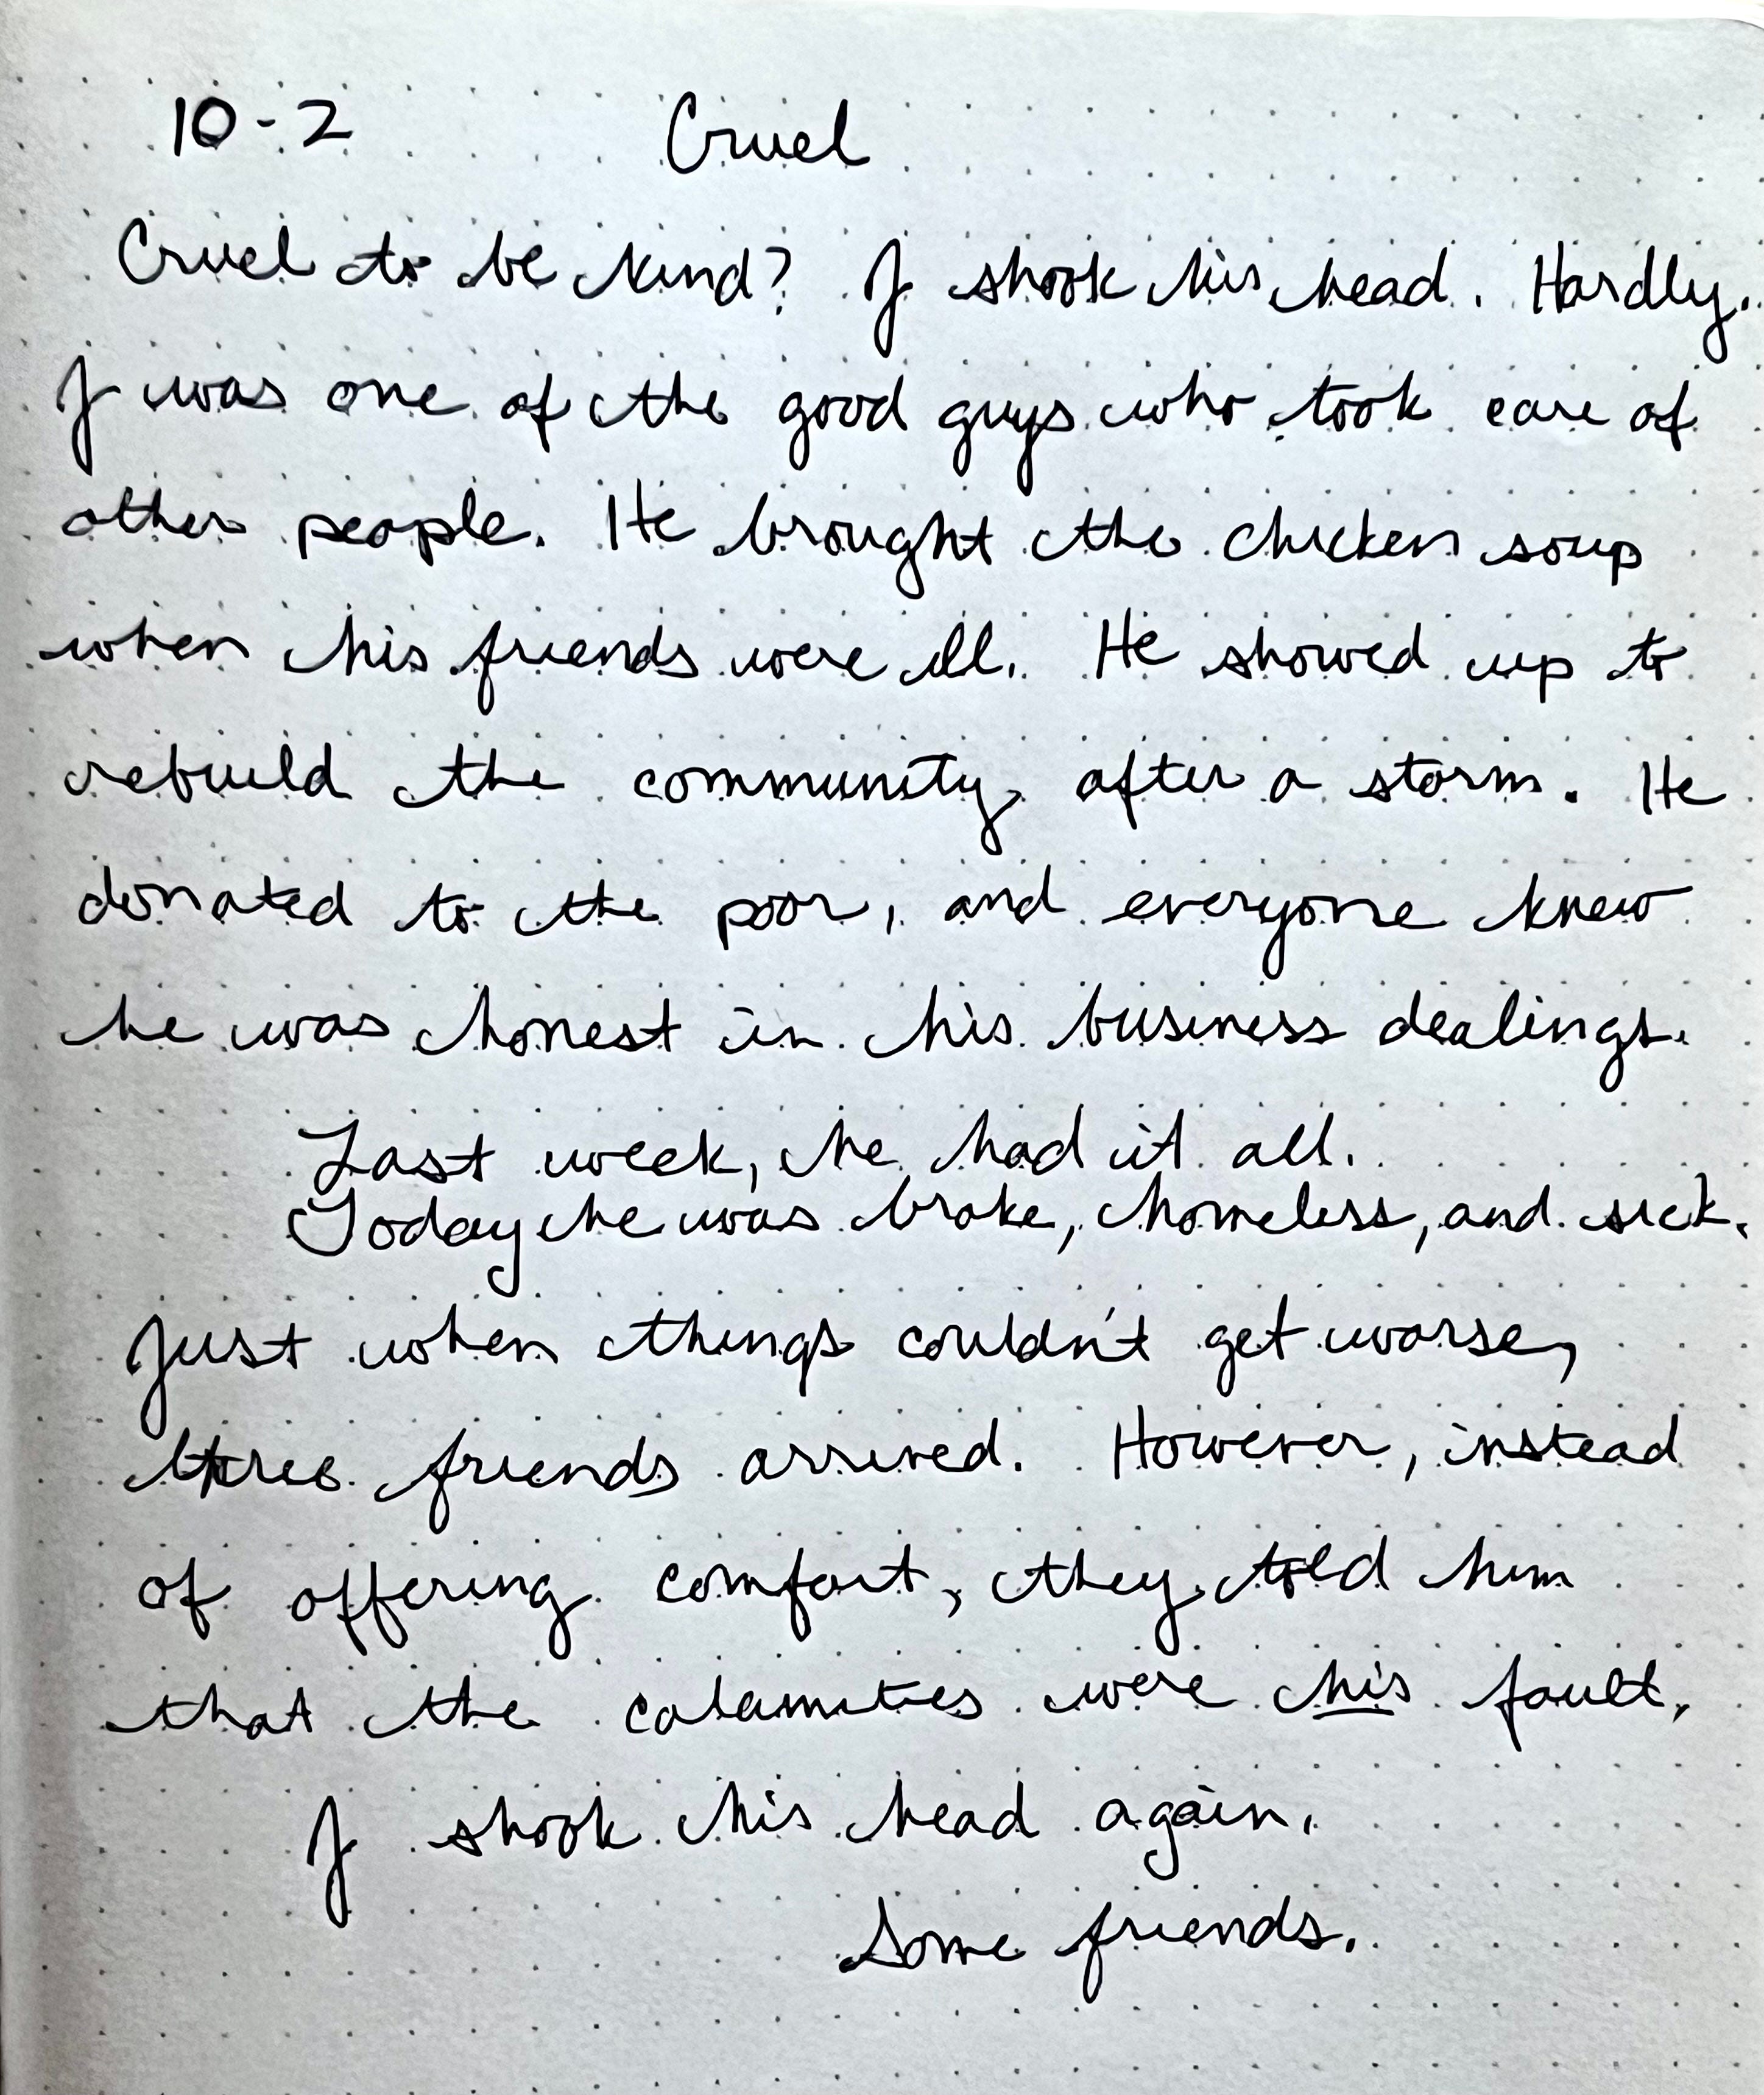 10-2 Cruel
Cruel to be kind? J shook his head. Hardly.
J was one of the good guys who took care of
other people. He brought the chicken soup
when his friends were ill. He showed up to
rebuild the community after a storm. He
donated to the poor, and everyone knew
he was honest in his business dealings.
Last week, he had it all.
Today he was broke, homeless, and sick.
Just when things couldn't get worse,
three friends arrived. However, instead
of offering comfort, they told him
that the calamities were his fault.
J shook his head again.
Some friends.